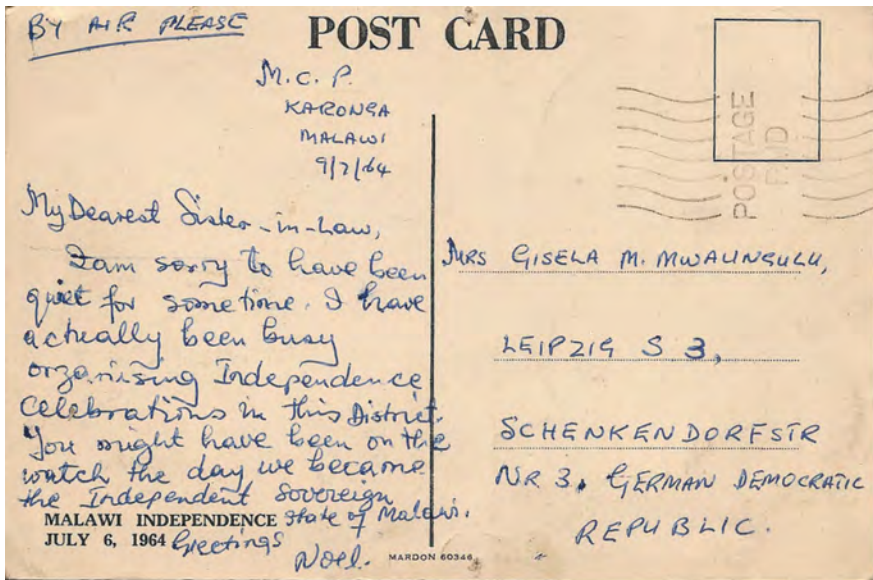 BY AIR PLEASE
POST CARD
M.C.P.
KARONGA
MALAWI
9/7/64
My Dearest Sister-in-Law,
I am sorry to have been
quiet for sometime. I have
actually been busy
organising Independence
Celebrations in this District.
You might have been on the
watch the day we became
the Independent Sovereign
State of Malawi.
Greetings
Noel.
MALAWI INDEPENDENCE
JULY 6, 1964
MARDON 60346
POSTAGE
PAID
MRS GISELA M. MWALINGULU,
LEIPZIG S 3,
SCHENKENDORFSTR
NR 3. GERMAN DEMOCRATIC
REPUBLIC.